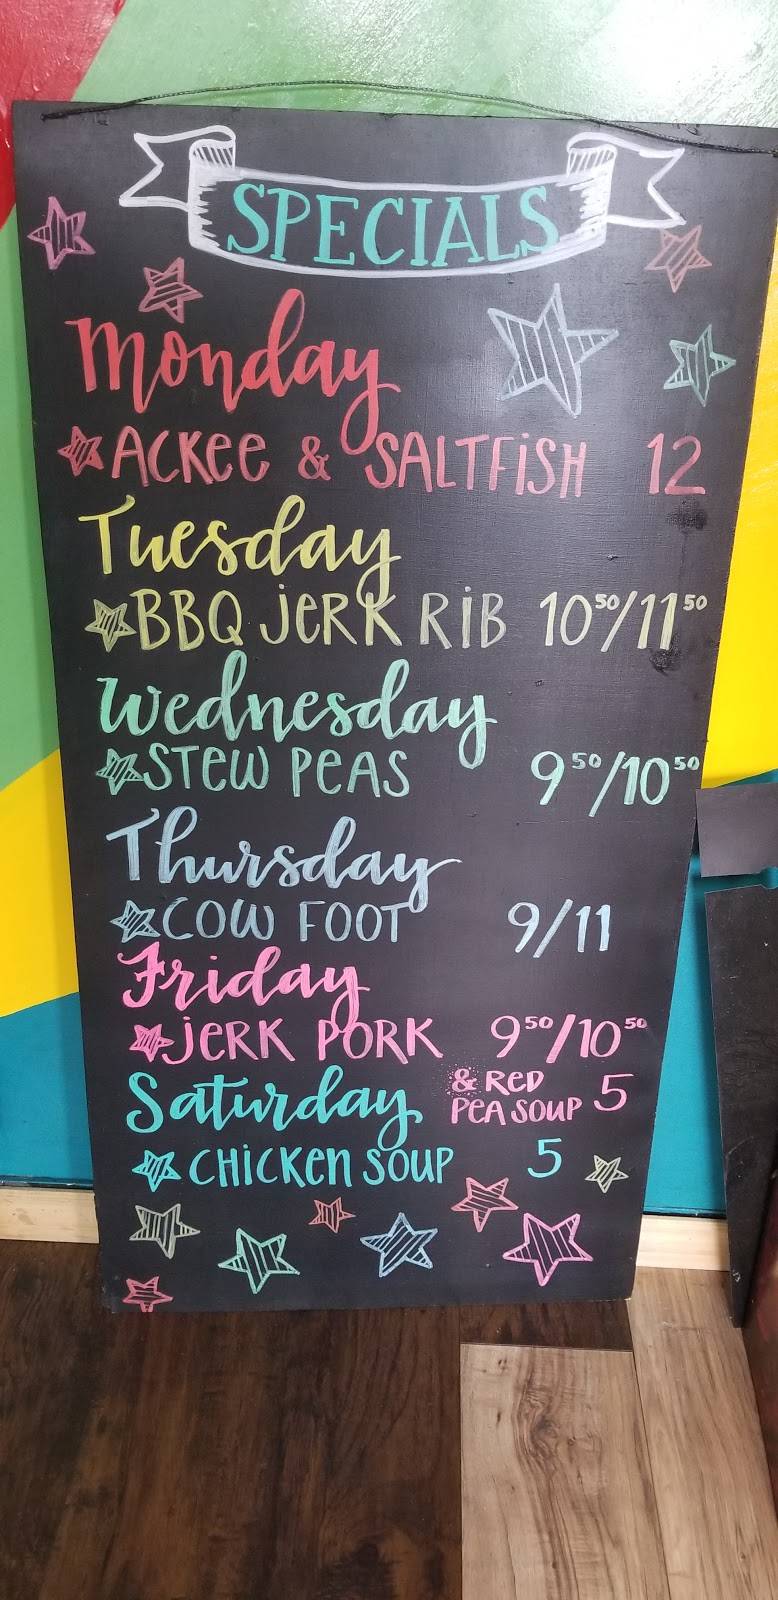 SPECIALS
Monday
ACKEE & SALTFISH 12
Tuesday
BBQ JERK RIB 10⁵⁰/11⁵⁰
Wednesday
STEW PEAS 9⁵⁰/10⁵⁰
Thursday
COW FOOT 9/11
Friday
JERK PORK 9⁵⁰/10⁵⁰
& RED
PEA SOUP 5
Saturday
CHICKEN SOUP 5